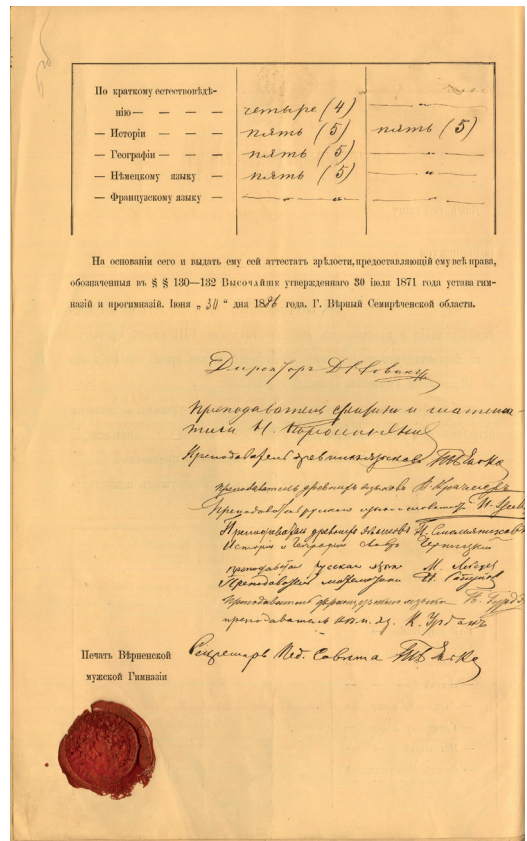 По краткому естествовѣдѣ-
нію — — — — четыре (4) — „ —
— Исторіи — — — пять (5) пять (5)
— Географіи — — — пять (5) — „ —
— Нѣмецкому языку — пять (5) — „ —
— Французскому языку — — „ — „ — — „ —
На основаніи сего и выдать ему сей аттестатъ зрѣлости, предоставляющій ему всѣ права,
обозначенныя въ § § 130—132 Высочайше утвержденнаго 30 іюля 1871 года устава гим-
назій и прогимназій. Іюня „ 30 “ дня 1886 года. Г. Вѣрный Семирѣченской области.
Директоръ
Преподаватель физики и матема-
тики Н.
Преподаватель древнихъ языковъ
преподаватель древнихъ языковъ
Преподаватель русскаго языка и словесности
Преподаватель древнихъ языковъ
Исторіи и Географіи
преподаватель русскаго языка М.
Преподаватель математики
Преподаватель французскаго языка
преподаватель нѣм. яз. К. Урбанъ
Секретарь Пед. Совѣта
Печать Вѣрненской
мужской Гимназіи